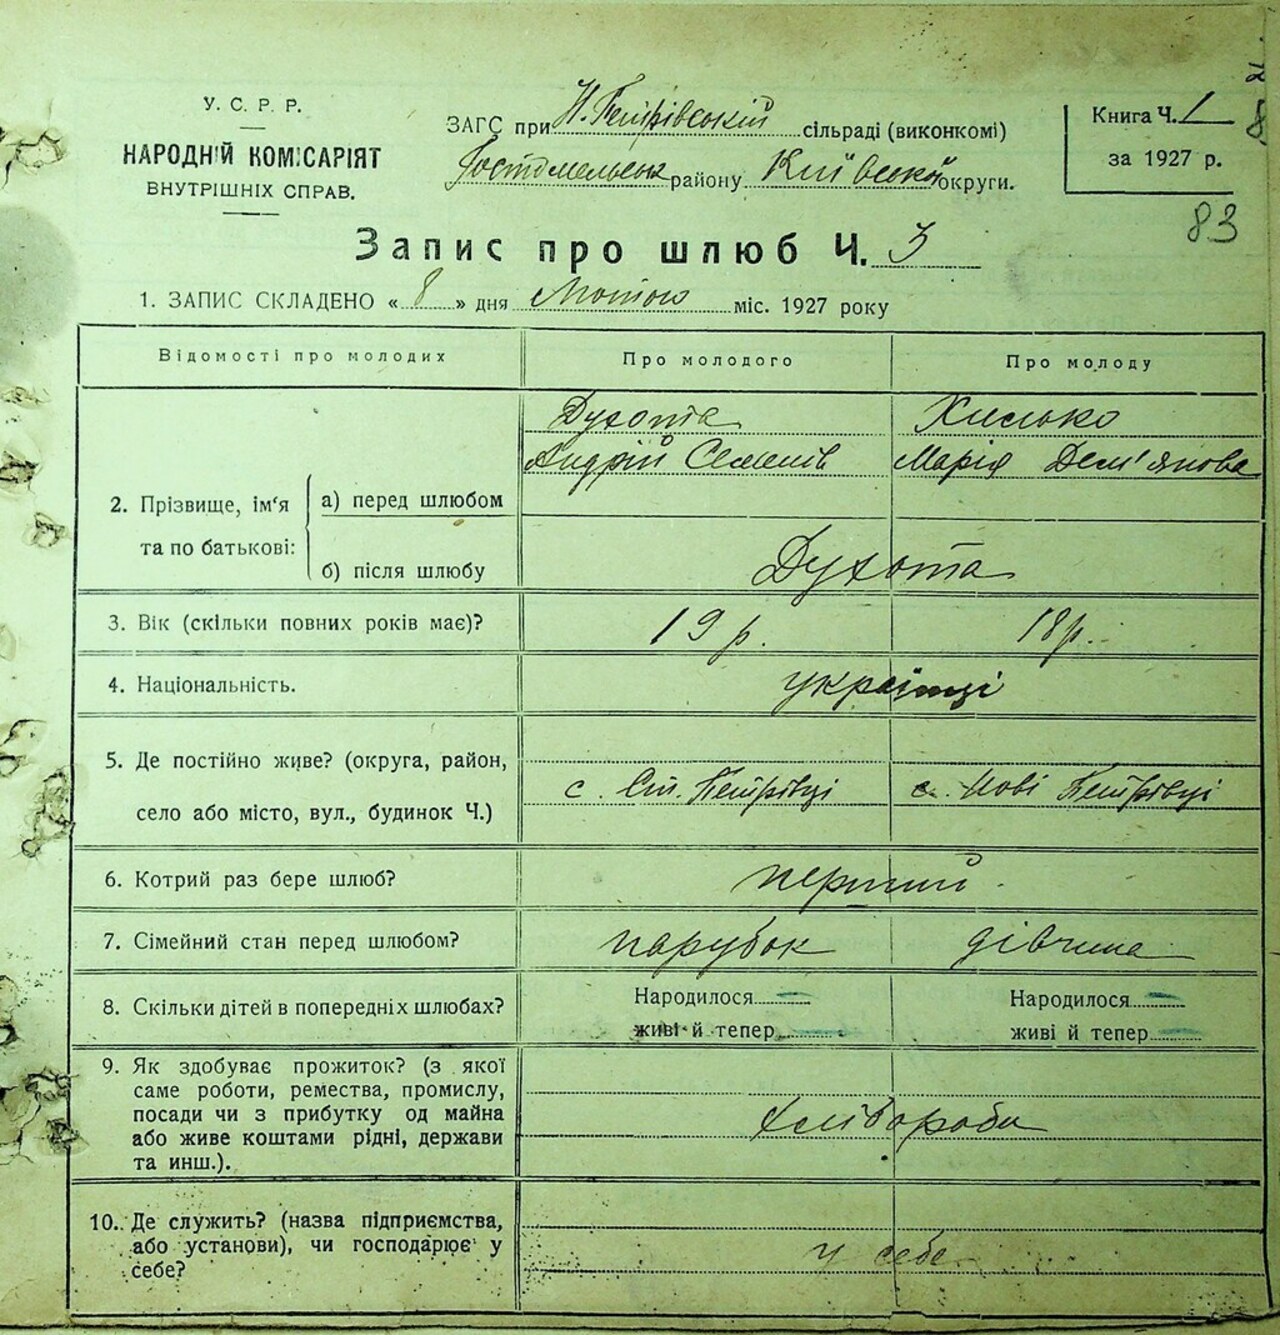 У. С. Р. Р.
НАРОДНІЙ КОМІСАРІЯТ
ВНУТРІШНІХ СПРАВ.
ЗАГС при Н. Петрівській сільраді (виконкомі)
Гостомельськ району Київської округи.
Книга Ч. 1
за 1927 р.
83
Запис про шлюб Ч. 3
1. ЗАПИС СКЛАДЕНО « 8 » дня Лютого міс. 1927 року
Відомості про молодих Про молодого Про молоду
Духота Хилько
Андрій Семенів Марія Дем'янова
2. Прізвище, ім'я та по батькові:
а) перед шлюбом
б) після шлюбу Духота
3. Вік (скільки повних років має)? 19 р. 18 р.
4. Національність. українці
5. Де постійно живе? (округа, район,
с. Ст. Петрівці с. Нові Петрівці
село або місто, вул., будинок Ч.)
6. Котрий раз бере шлюб? перший.
7. Сімейний стан перед шлюбом? парубок дівчина
8. Скільки дітей в попередніх шлюбах? Народилося — Народилося —
живі й тепер — живі й тепер —
9. Як здобуває прожиток? (з якої
саме роботи, ремества, промислу,
посади чи з прибутку од майна Хлібороби
або живе коштами рідні, держави
та инш.).
10. Де служить? (назва підприємства,
або установи), чи господарює у у себе
себе?